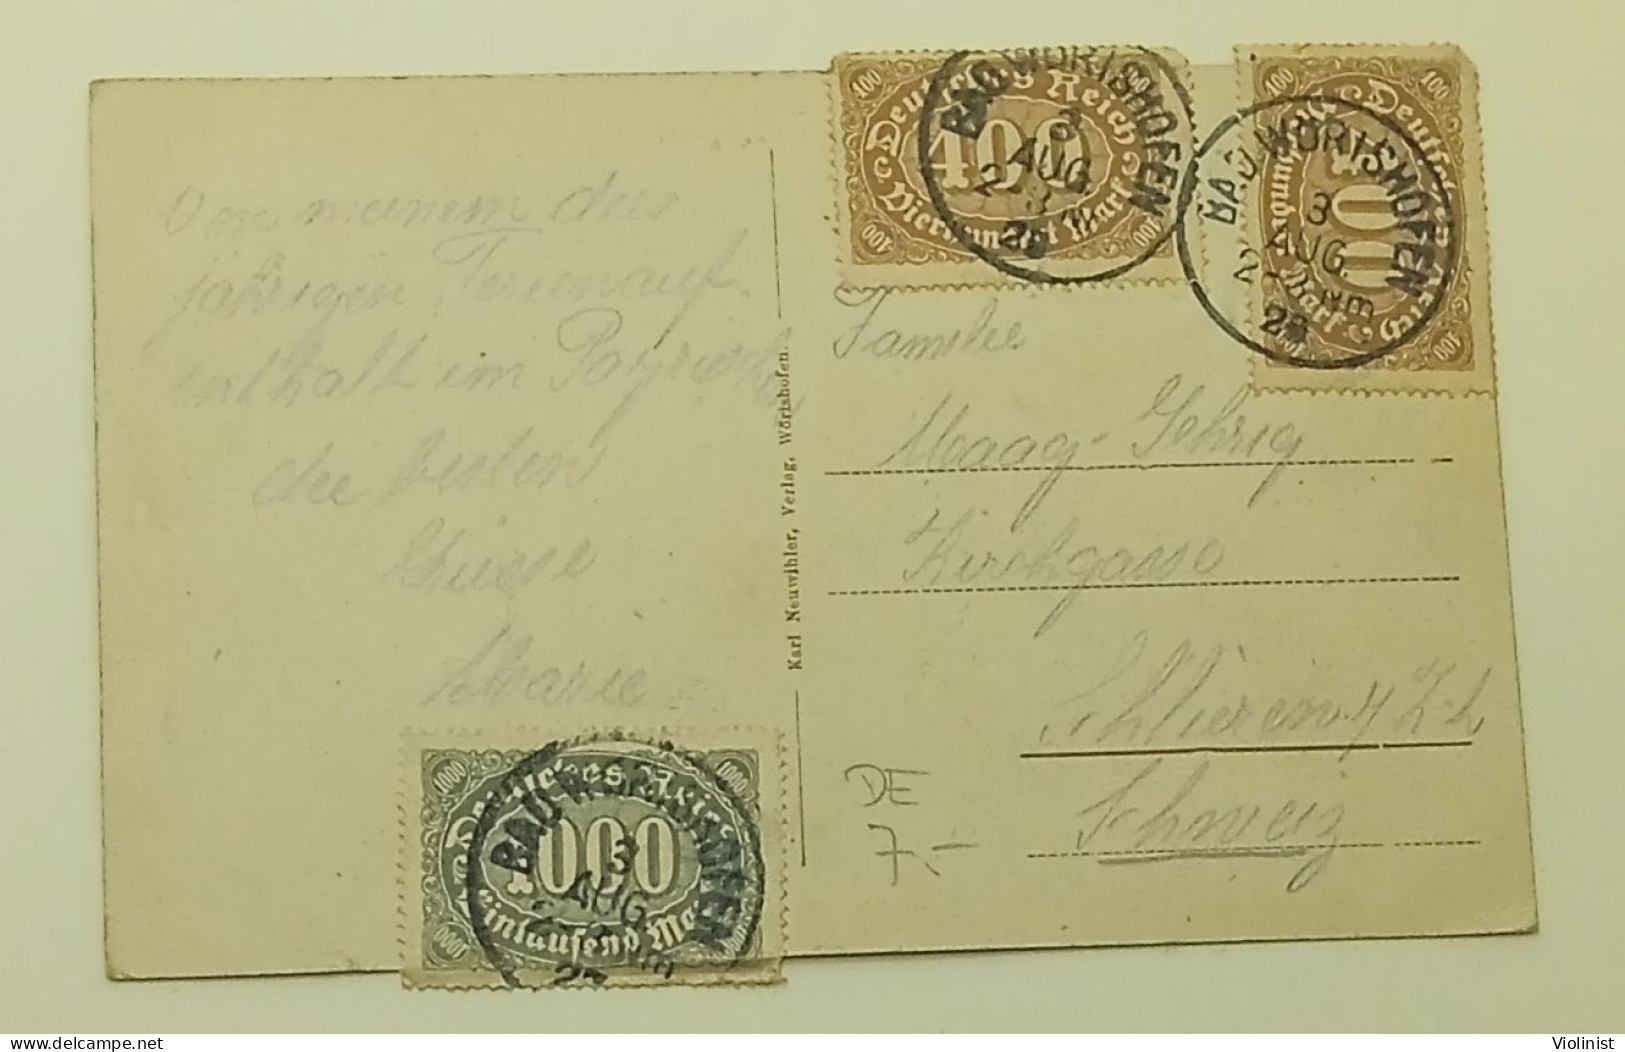 Von meinem dies
jährigen Ferienauf
enthalt im
die besten
Grüsse
Marie
Karl Neuwihler, Verlag, Wörishofen.
100 Deutsches Reich 100
400
100 Vierhundert Mark 100
BAD WÖRISHOFEN
3
AUG.
23
100 Deutsches
400
Mark 100
BAD WÖRISHOFEN
3
AUG.
Nm
23
Familie
Maag-Gehrig
Kirchgasse
Schlieren / Zch
Schweiz
DE
7.-
1000 Deutsches Reich 1000
1000
1000 Eintausend Mark 1000
BAD WÖRISHOFEN
3
AUG.
Nm
23
delcampe.net
Violinist